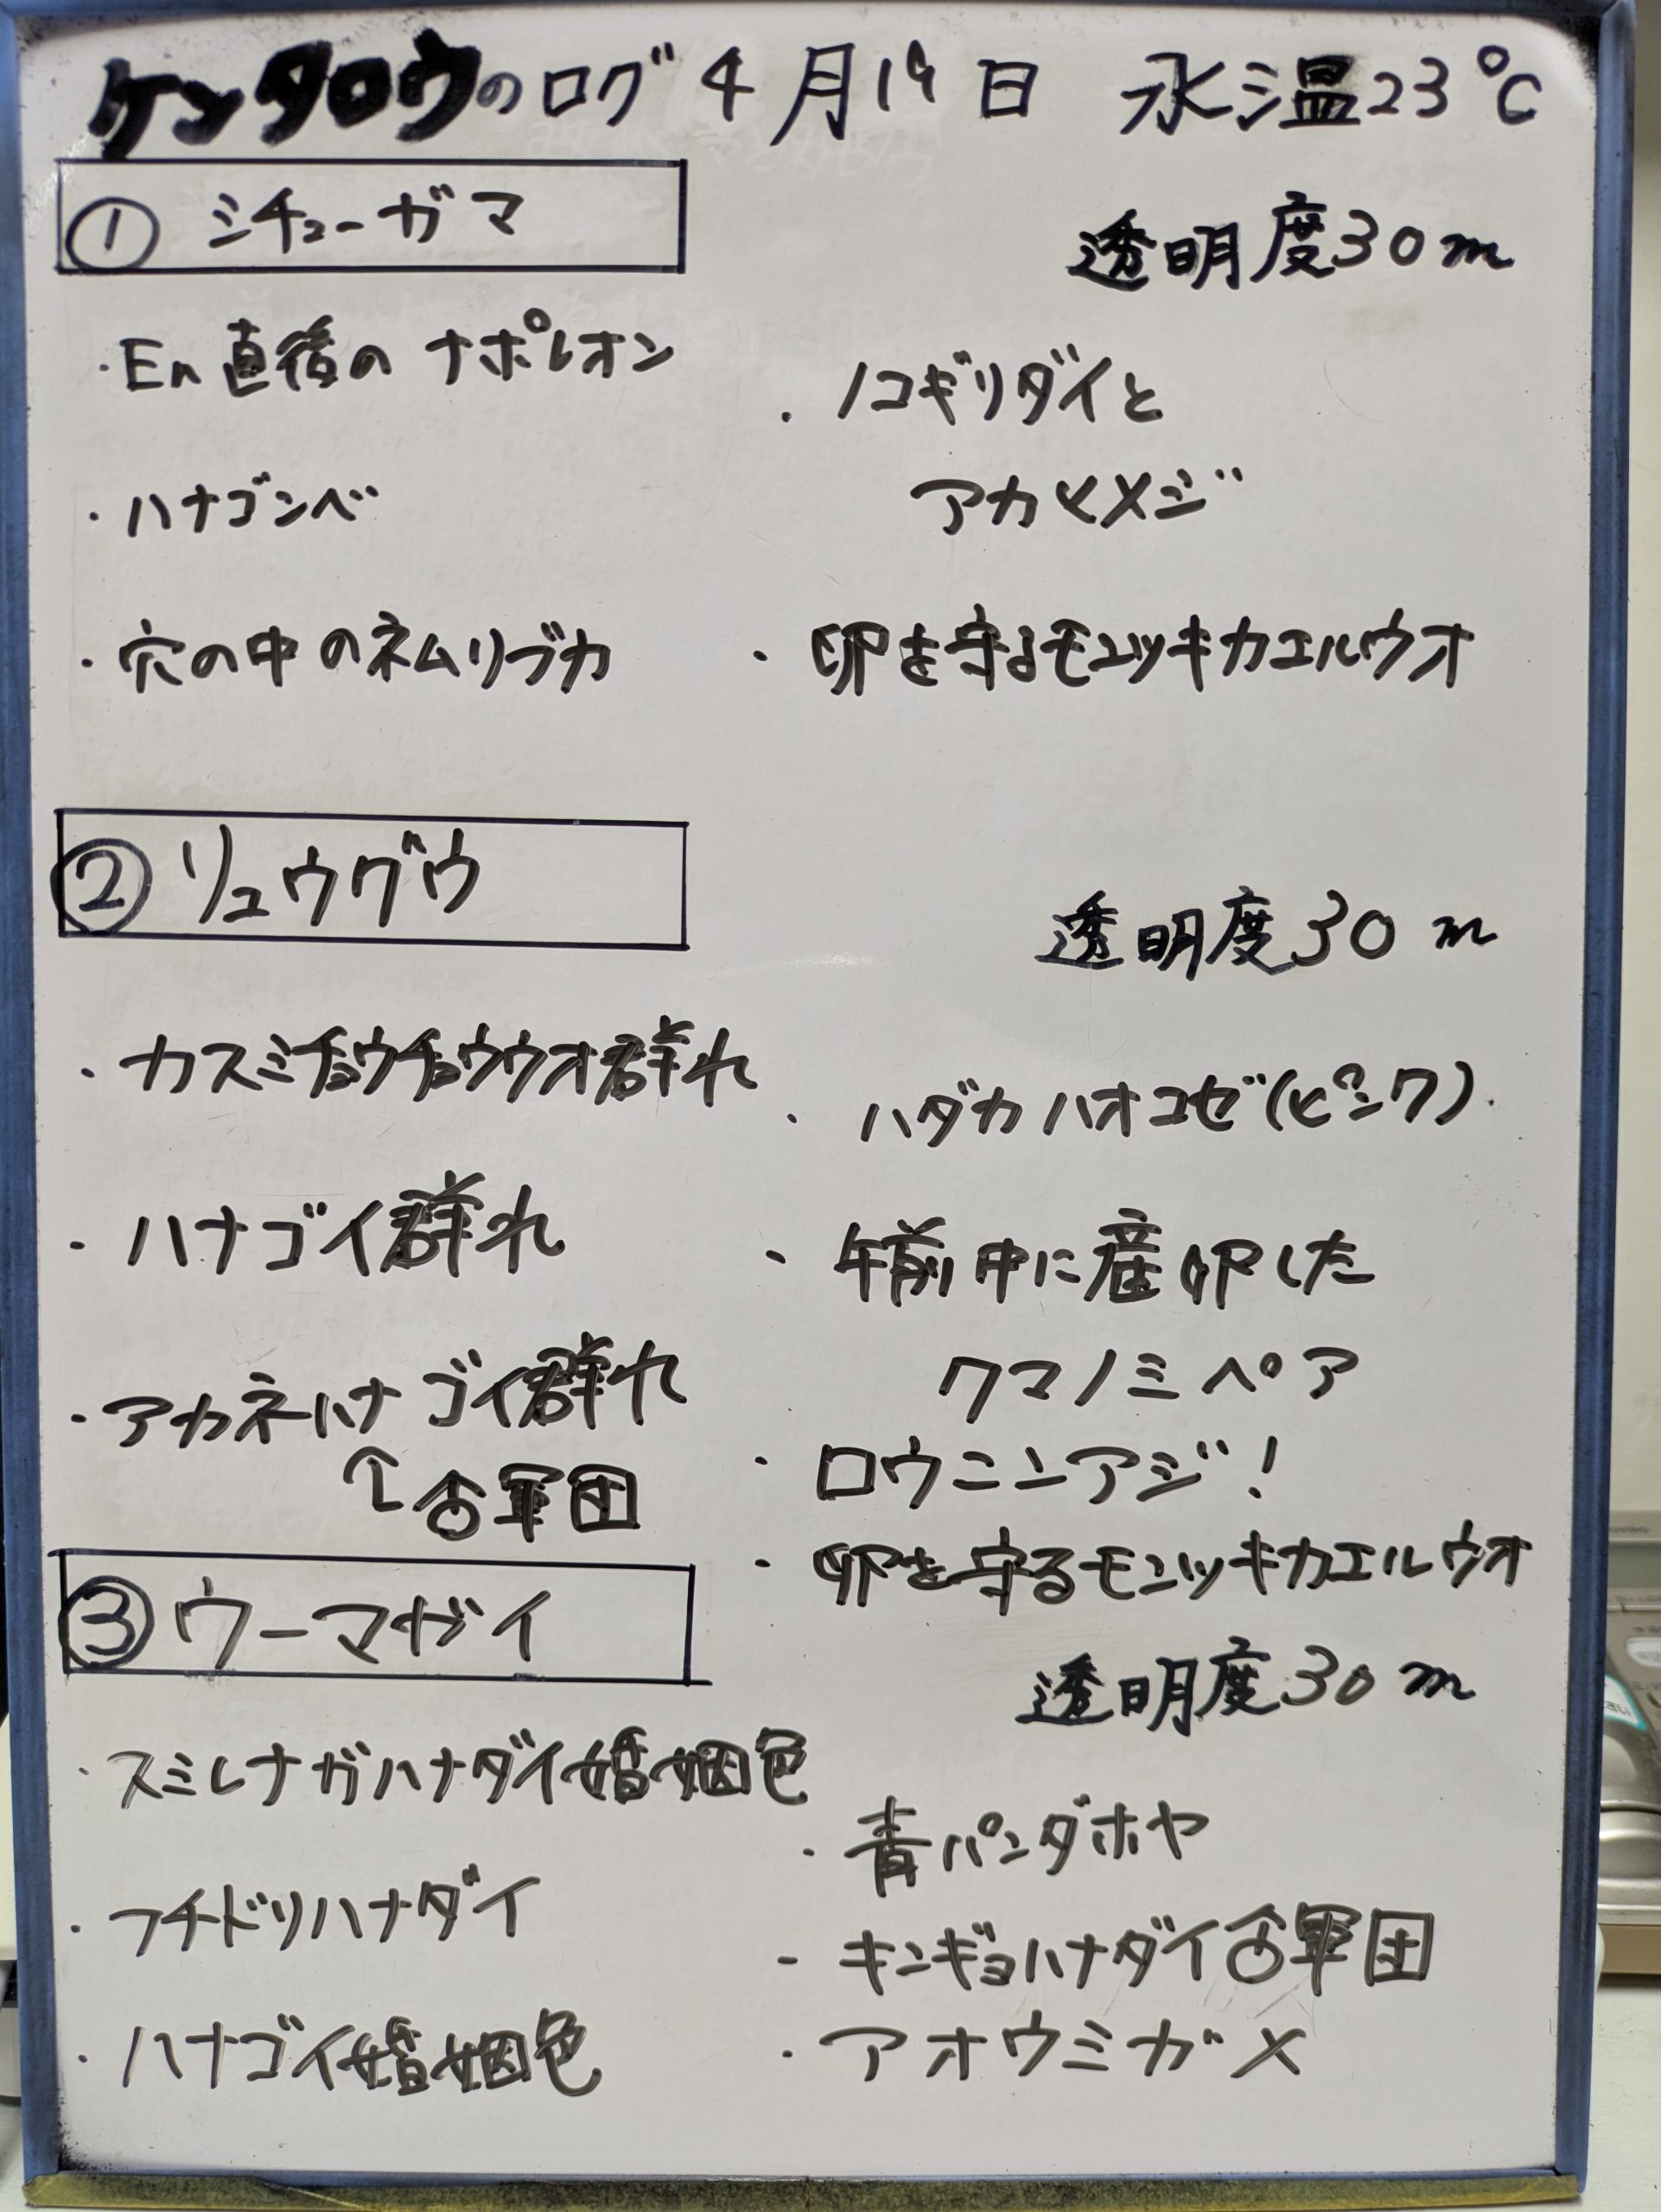 ケンタロウのログ 4月19日 水温23℃
① シチューガマ
透明度30m
・En直後のナポレオン
・ハナゴンベ
・穴の中のネムリブカ
・ノコギリダイと
アカヒメジ
・卵を守るモンツキカエルウオ
② リュウグウ
透明度30m
・カスミチョウチョウウオ群れ
・ハナゴイ群れ
・アカネハナゴイ群れ
↑♂軍団
・ハダカハオコゼ(ピンク)
・午前中に産卵した
クマノミペア
・ロウニンアジ!
・卵を守るモンツキカエルウオ
③ ウーマガイ
透明度30m
・スミレナガハナダイ婚姻色
・フチドリハナダイ
・ハナゴイ婚姻色
・青パンダホヤ
・キンギョハナダイ♂軍団
・アオウミガメ